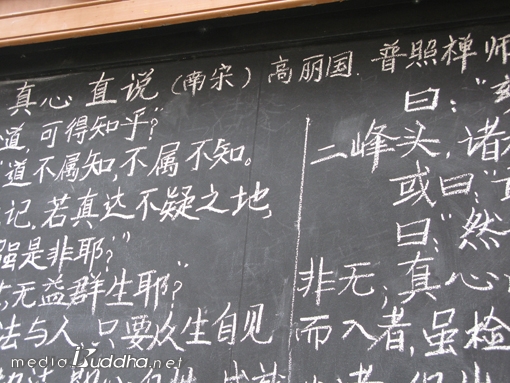 真心直说（南宋）高丽国.普照禅师
道,可得知乎？"
"道不属知,不属不知。
记,若真达不疑之地,
强是非耶？"
无益群生耶？"
法与人,只要众生自见
曰："
二峰头,诸
或曰："
曰："然
非无；真心
而入者,虽检
mediaBuddha.net